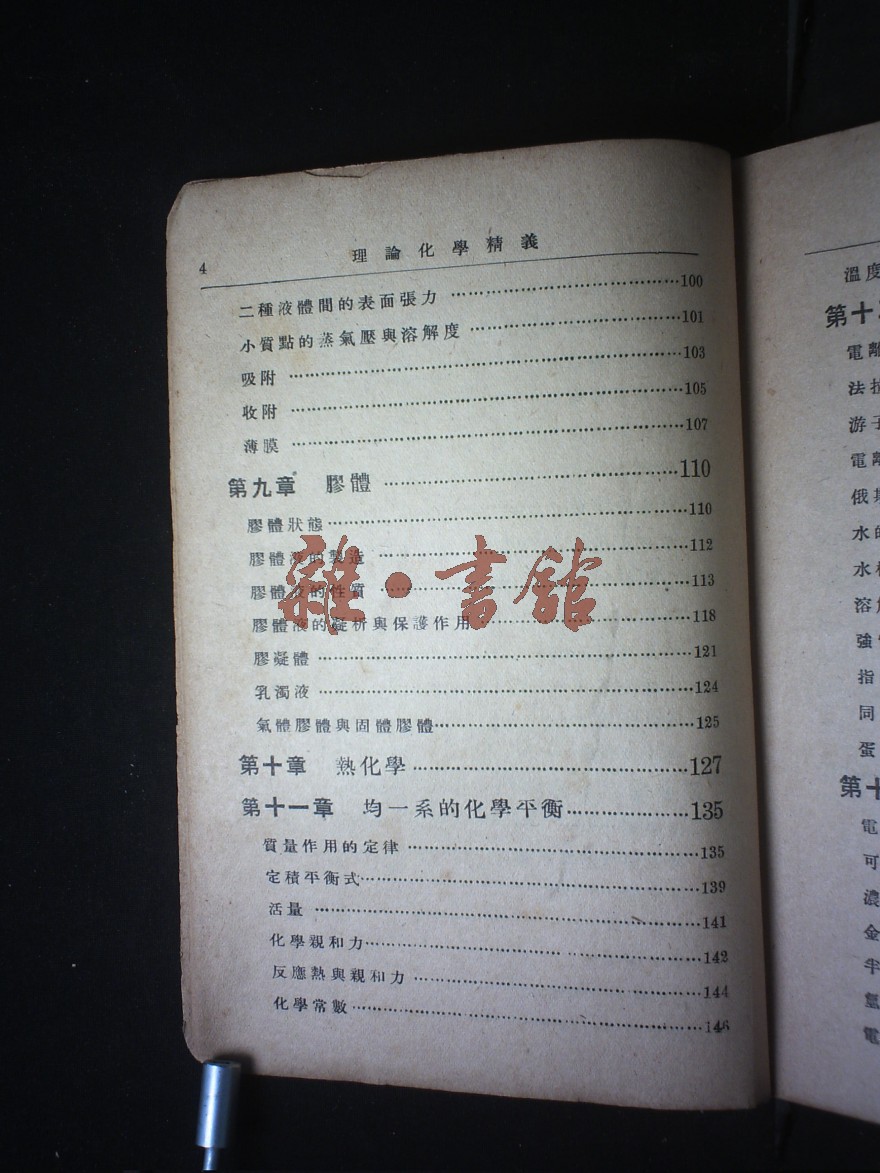 4 理論化學精義
二種液體間的表面張力 ……100
小質點的蒸氣壓與溶解度 ……101
吸附 ……103
收附 ……105
薄膜 ……107
第九章 膠體 ……110
膠體狀態……110
膠體液的製造 ……112
膠體液的性質 ……113
膠體液的凝析與保護作用 ……118
膠凝體 ……121
乳濁液 ……124
氣體膠體與固體膠體……125
第十章 熱化學……127
第十一章 均一系的化學平衡……135
質量作用的定律 ……135
定積平衡式……139
活量 ……141
化學親和力……142
反應熱與親和力 ……144
化學常數……146
雜·書館
溫度
第十
電離
法拉
游子
電離
俄斯
水的
水
溶解
強
指
同
蛋
第十
電
可
濃
金
半
氫
電